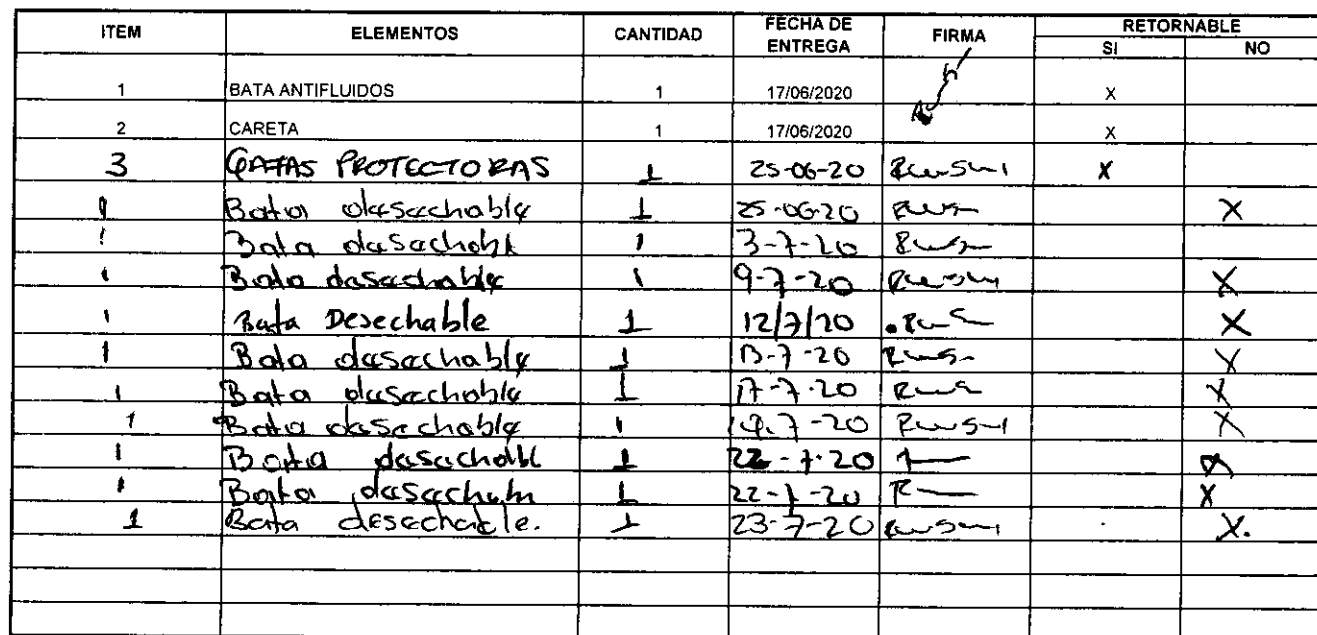 ITEM ELEMENTOS CANTIDAD FECHA DE ENTREGA FIRMA RETORNABLE
SI NO
1 BATA ANTIFLUIDOS 1 17/06/2020 X
2 CARETA 1 17/06/2020 X
3 GAFAS PROTECTORAS 1 25-06-20 X
1 Bata desechable 1 25-06-20 X
1 Bata desechabl 1 3-7-20
1 Bata desechable 1 9-7-20 X
1 Bata Desechable 1 12/7/20 X
1 Bata desechable 1 13-7-20 X
1 Bata desechable 1 17-7-20 X
1 Bata desechable 1 19-7-20 X
1 Bata desechabl 1 22-7-20 X
1 Bata 1 22-7-20 X
1 Bata desechable. 1 23-7-20 X.